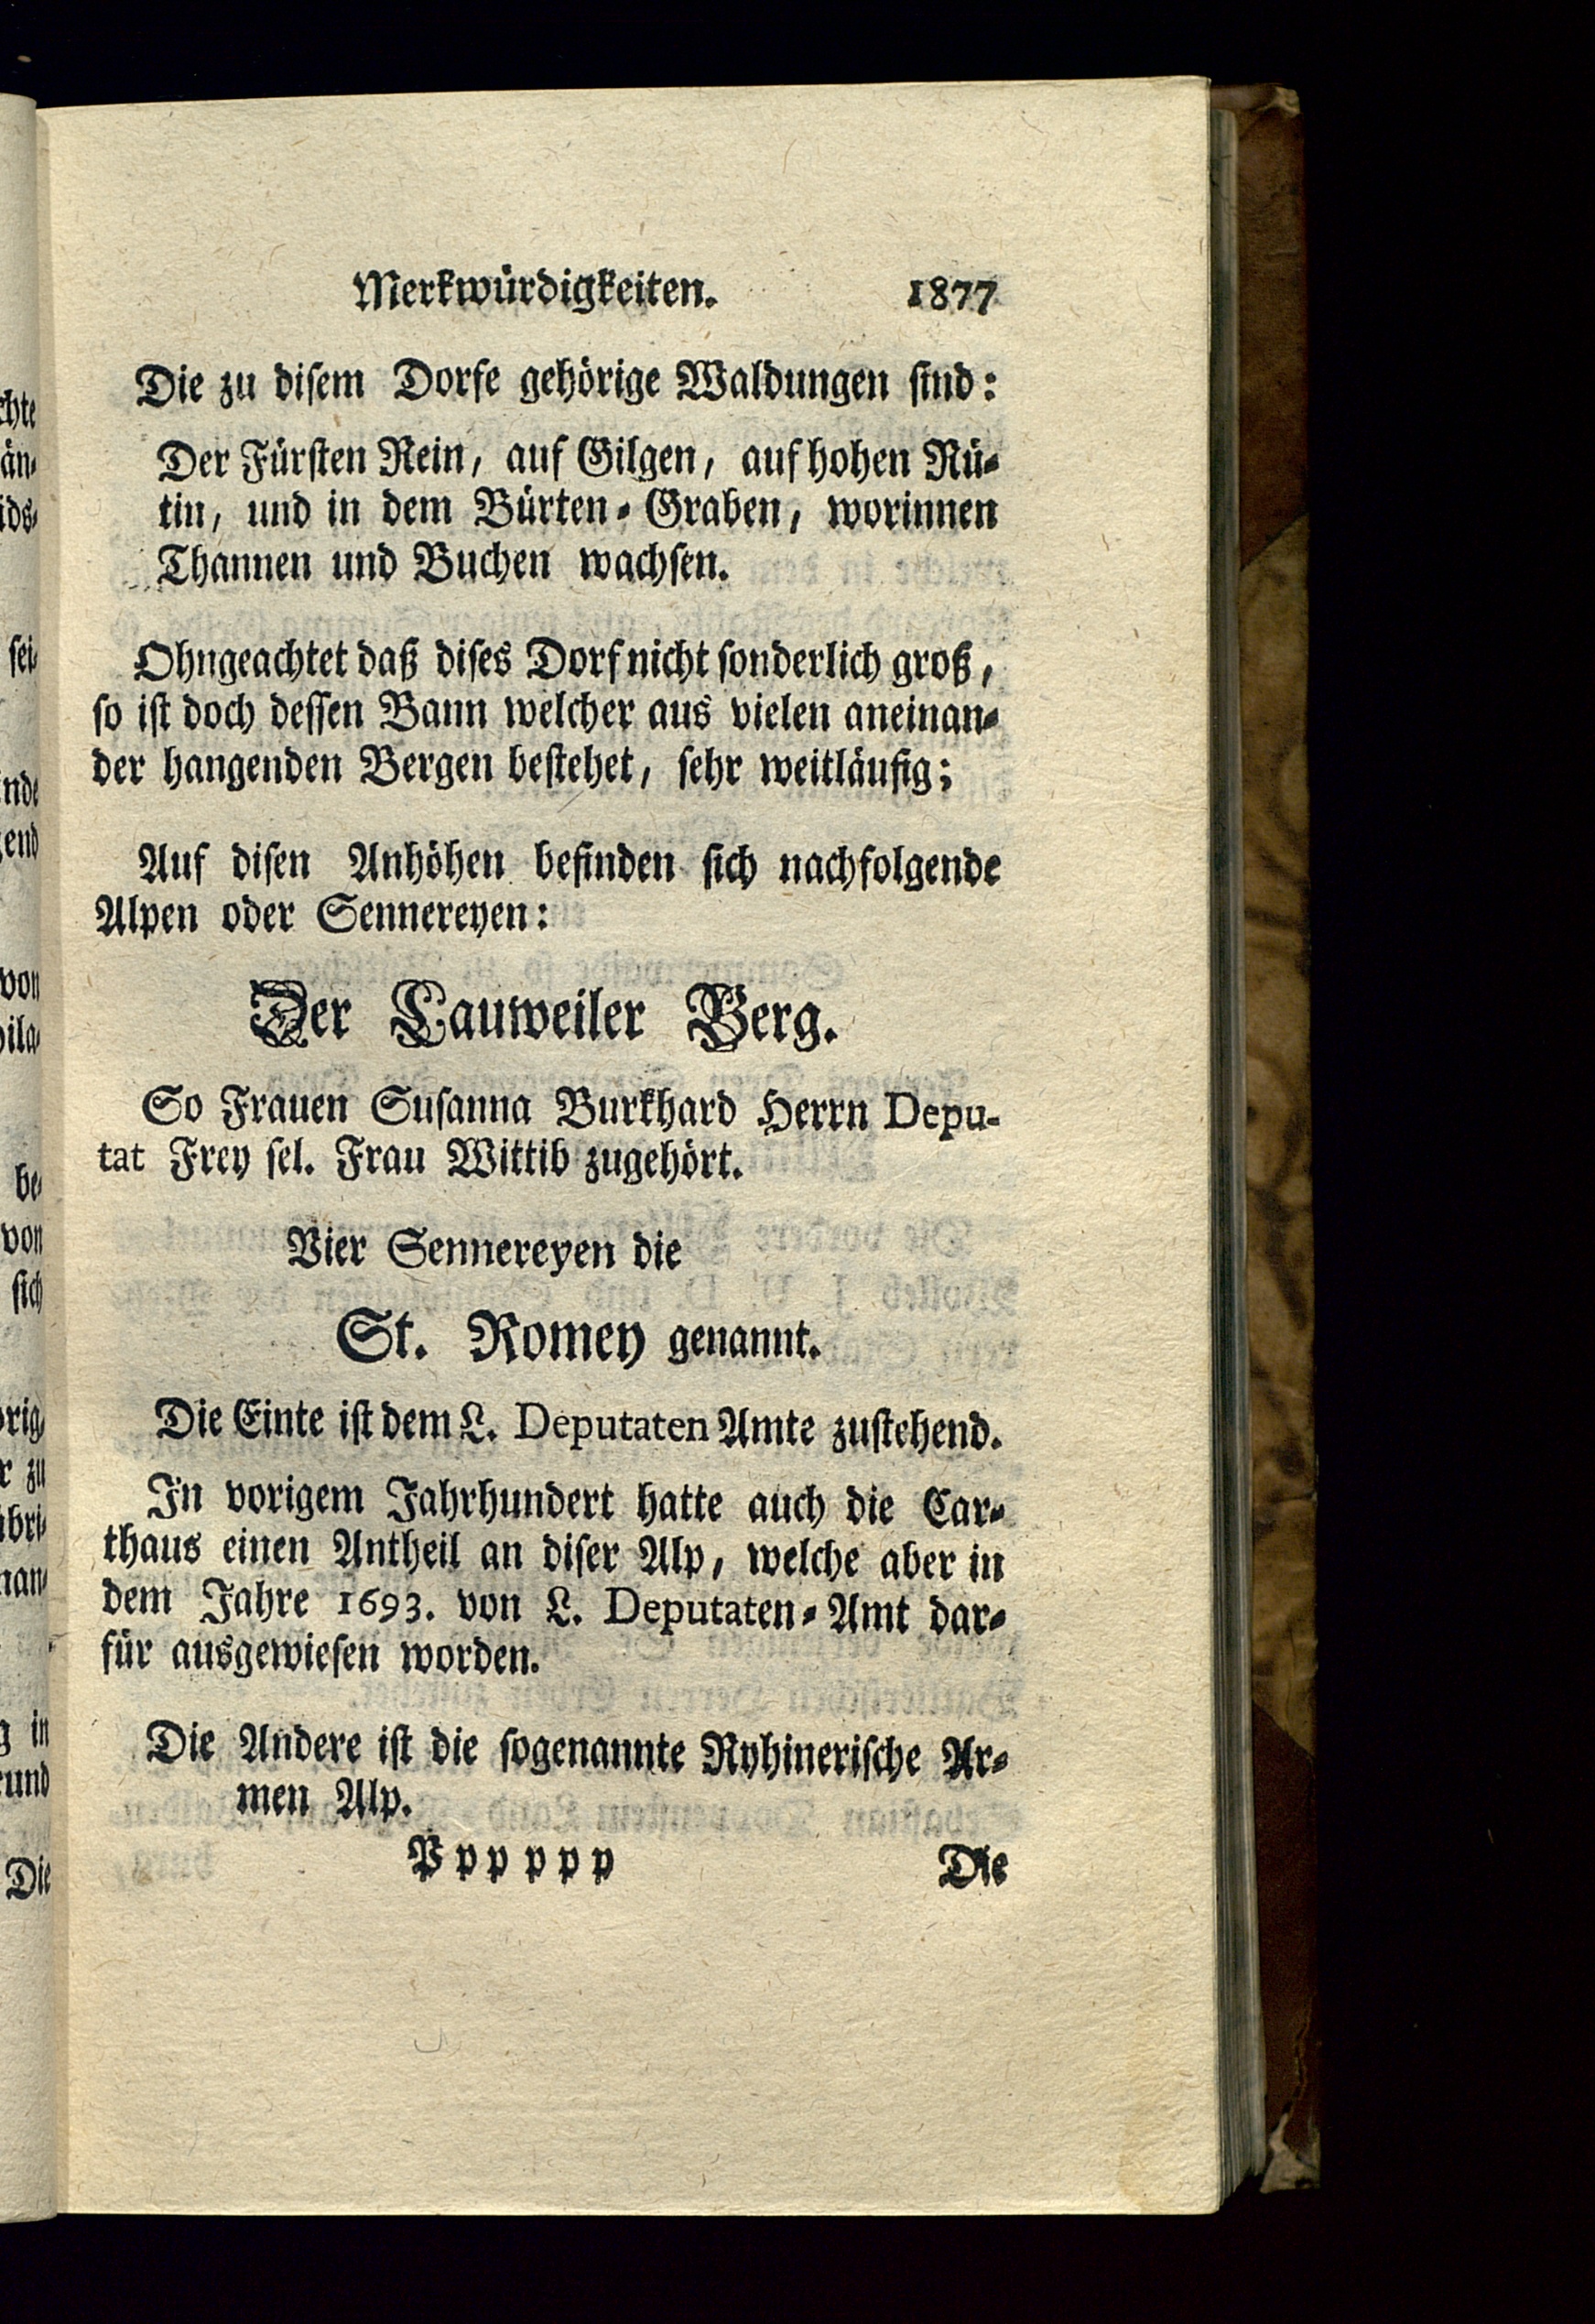 Merkwürdigkeiten. 1877
Die zu disem Dorfe gehörige Waldungen sind:
Der Fürsten Rein, auf Gilgen, auf hohen Rü-
tin, und in dem Bürten-Graben, worinnen
Thannen und Buchen wachsen.
Ohngeachtet daß dises Dorf nicht sonderlich groß,
so ist doch dessen Bann welcher aus vielen aneinan-
der hangenden Bergen bestehet, sehr weitläufig;
Auf disen Anhöhen befinden sich nachfolgende
Alpen oder Sennereyen:
Der Lauweiler Berg.
So Frauen Susanna Burkhard Herrn Depu-
tat Frey sel. Frau Wittib zugehört.
Vier Sennereyen die
St. Romey genannt.
Die Einte ist dem L. Deputaten Amte zustehend.
In vorigem Jahrhundert hatte auch die Car-
thaus einen Antheil an diser Alp, welche aber in
dem Jahre 1693. von L. Deputaten-Amt dar-
für ausgewiesen worden.
Die Andere ist die sogenannte Ryhinerische Ar-
men Alp.
Pppppp Die